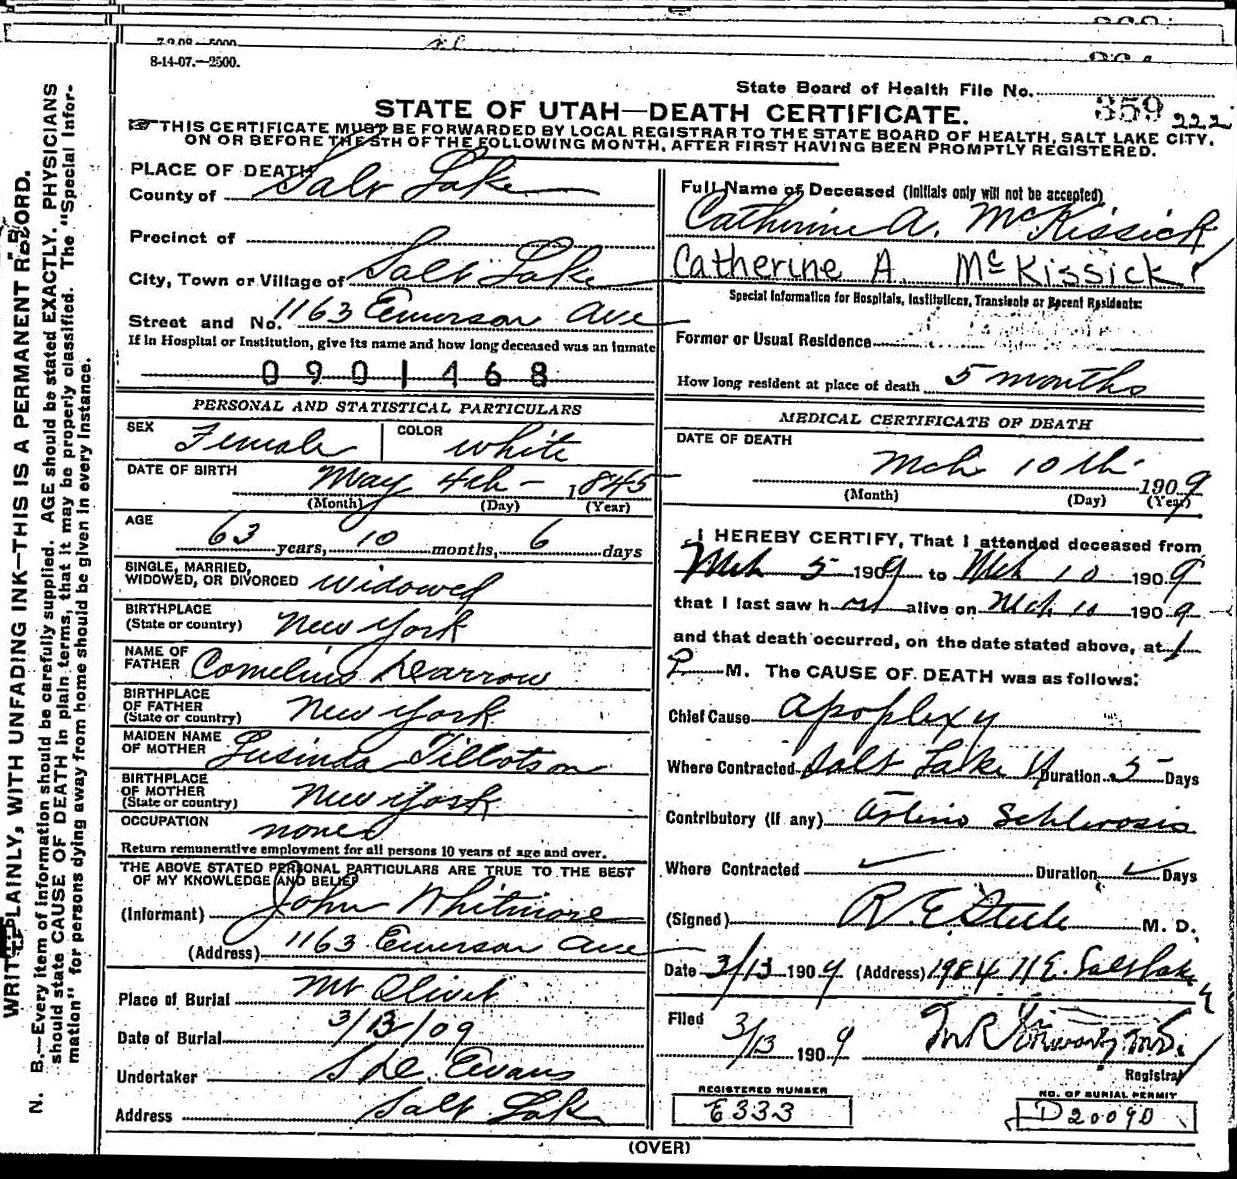 7-2-08—5000
8-14-07.—2500.
State Board of Health File No.
359 222
STATE OF UTAH—DEATH CERTIFICATE.
THIS CERTIFICATE MUST BE FORWARDED BY LOCAL REGISTRAR TO THE STATE BOARD OF HEALTH, SALT LAKE CITY,
ON OR BEFORE THE 5TH OF THE FOLLOWING MONTH, AFTER FIRST HAVING BEEN PROMPTLY REGISTERED.
WRITE PLAINLY, WITH UNFADING INK—THIS IS A PERMANENT RECORD.
N. B.—Every item of information should be carefully supplied. AGE should be stated EXACTLY. PHYSICIANS
should state CAUSE OF DEATH in plain terms, that it may be properly classified. The "Special Infor-
mation" for persons dying away from home should be given in every instance.
PLACE OF DEATH
County of Salt Lake
Precinct of
City, Town or Village of Salt Lake
Street and No. 1163 Emerson Ave
If in Hospital or Institution, give its name and how long deceased was an inmate
0901468
PERSONAL AND STATISTICAL PARTICULARS
SEX Female COLOR White
DATE OF BIRTH May 4th - 1845
(Month) (Day) (Year)
AGE 63 years, 10 months, 6 days
SINGLE, MARRIED,
WIDOWED, OR DIVORCED Widowed
BIRTHPLACE
(State or country) New York
NAME OF
FATHER Cornelius Darrow
BIRTHPLACE
OF FATHER
(State or country) New York
MAIDEN NAME
OF MOTHER Lusinda Tillotson
BIRTHPLACE
OF MOTHER
(State or country) New York
OCCUPATION none
Return remunerative employment for all persons 10 years of age and over.
THE ABOVE STATED PERSONAL PARTICULARS ARE TRUE TO THE BEST
OF MY KNOWLEDGE AND BELIEF
(Informant) John Whitmore
(Address) 1163 Emerson Ave
Place of Burial Mt Olivet
Date of Burial 3/13/09
Undertaker Evans
Address Salt Lake
Full Name of Deceased (Initials only will not be accepted)
Catherine A. McKissick
Catherine A. McKissick
Special Information for Hospitals, Institutions, Transients or Recent Residents:
Former or Usual Residence
How long resident at place of death 5 months
MEDICAL CERTIFICATE OF DEATH
DATE OF DEATH
Mch 10th 1909
(Month) (Day) (Year)
I HEREBY CERTIFY, That I attended deceased from
Mch 5 1909 to Mch 10 1909
that I last saw her alive on Mch 10 1909
and that death occurred, on the date stated above, at 1
P M. The CAUSE OF DEATH was as follows:
Chief Cause apoplexy
Where Contracted Salt Lake Duration 5 Days
Contributory (if any) Arterio Schlerosis
Where Contracted Duration Days
(Signed) R E Steele M. D.
Date 3/13 1909 (Address) 1984 11 E. Salt Lake
Filed 3/13 1909
Registrar
REGISTERED NUMBER
E333
NO. OF BURIAL PERMIT
D 20090
(OVER)